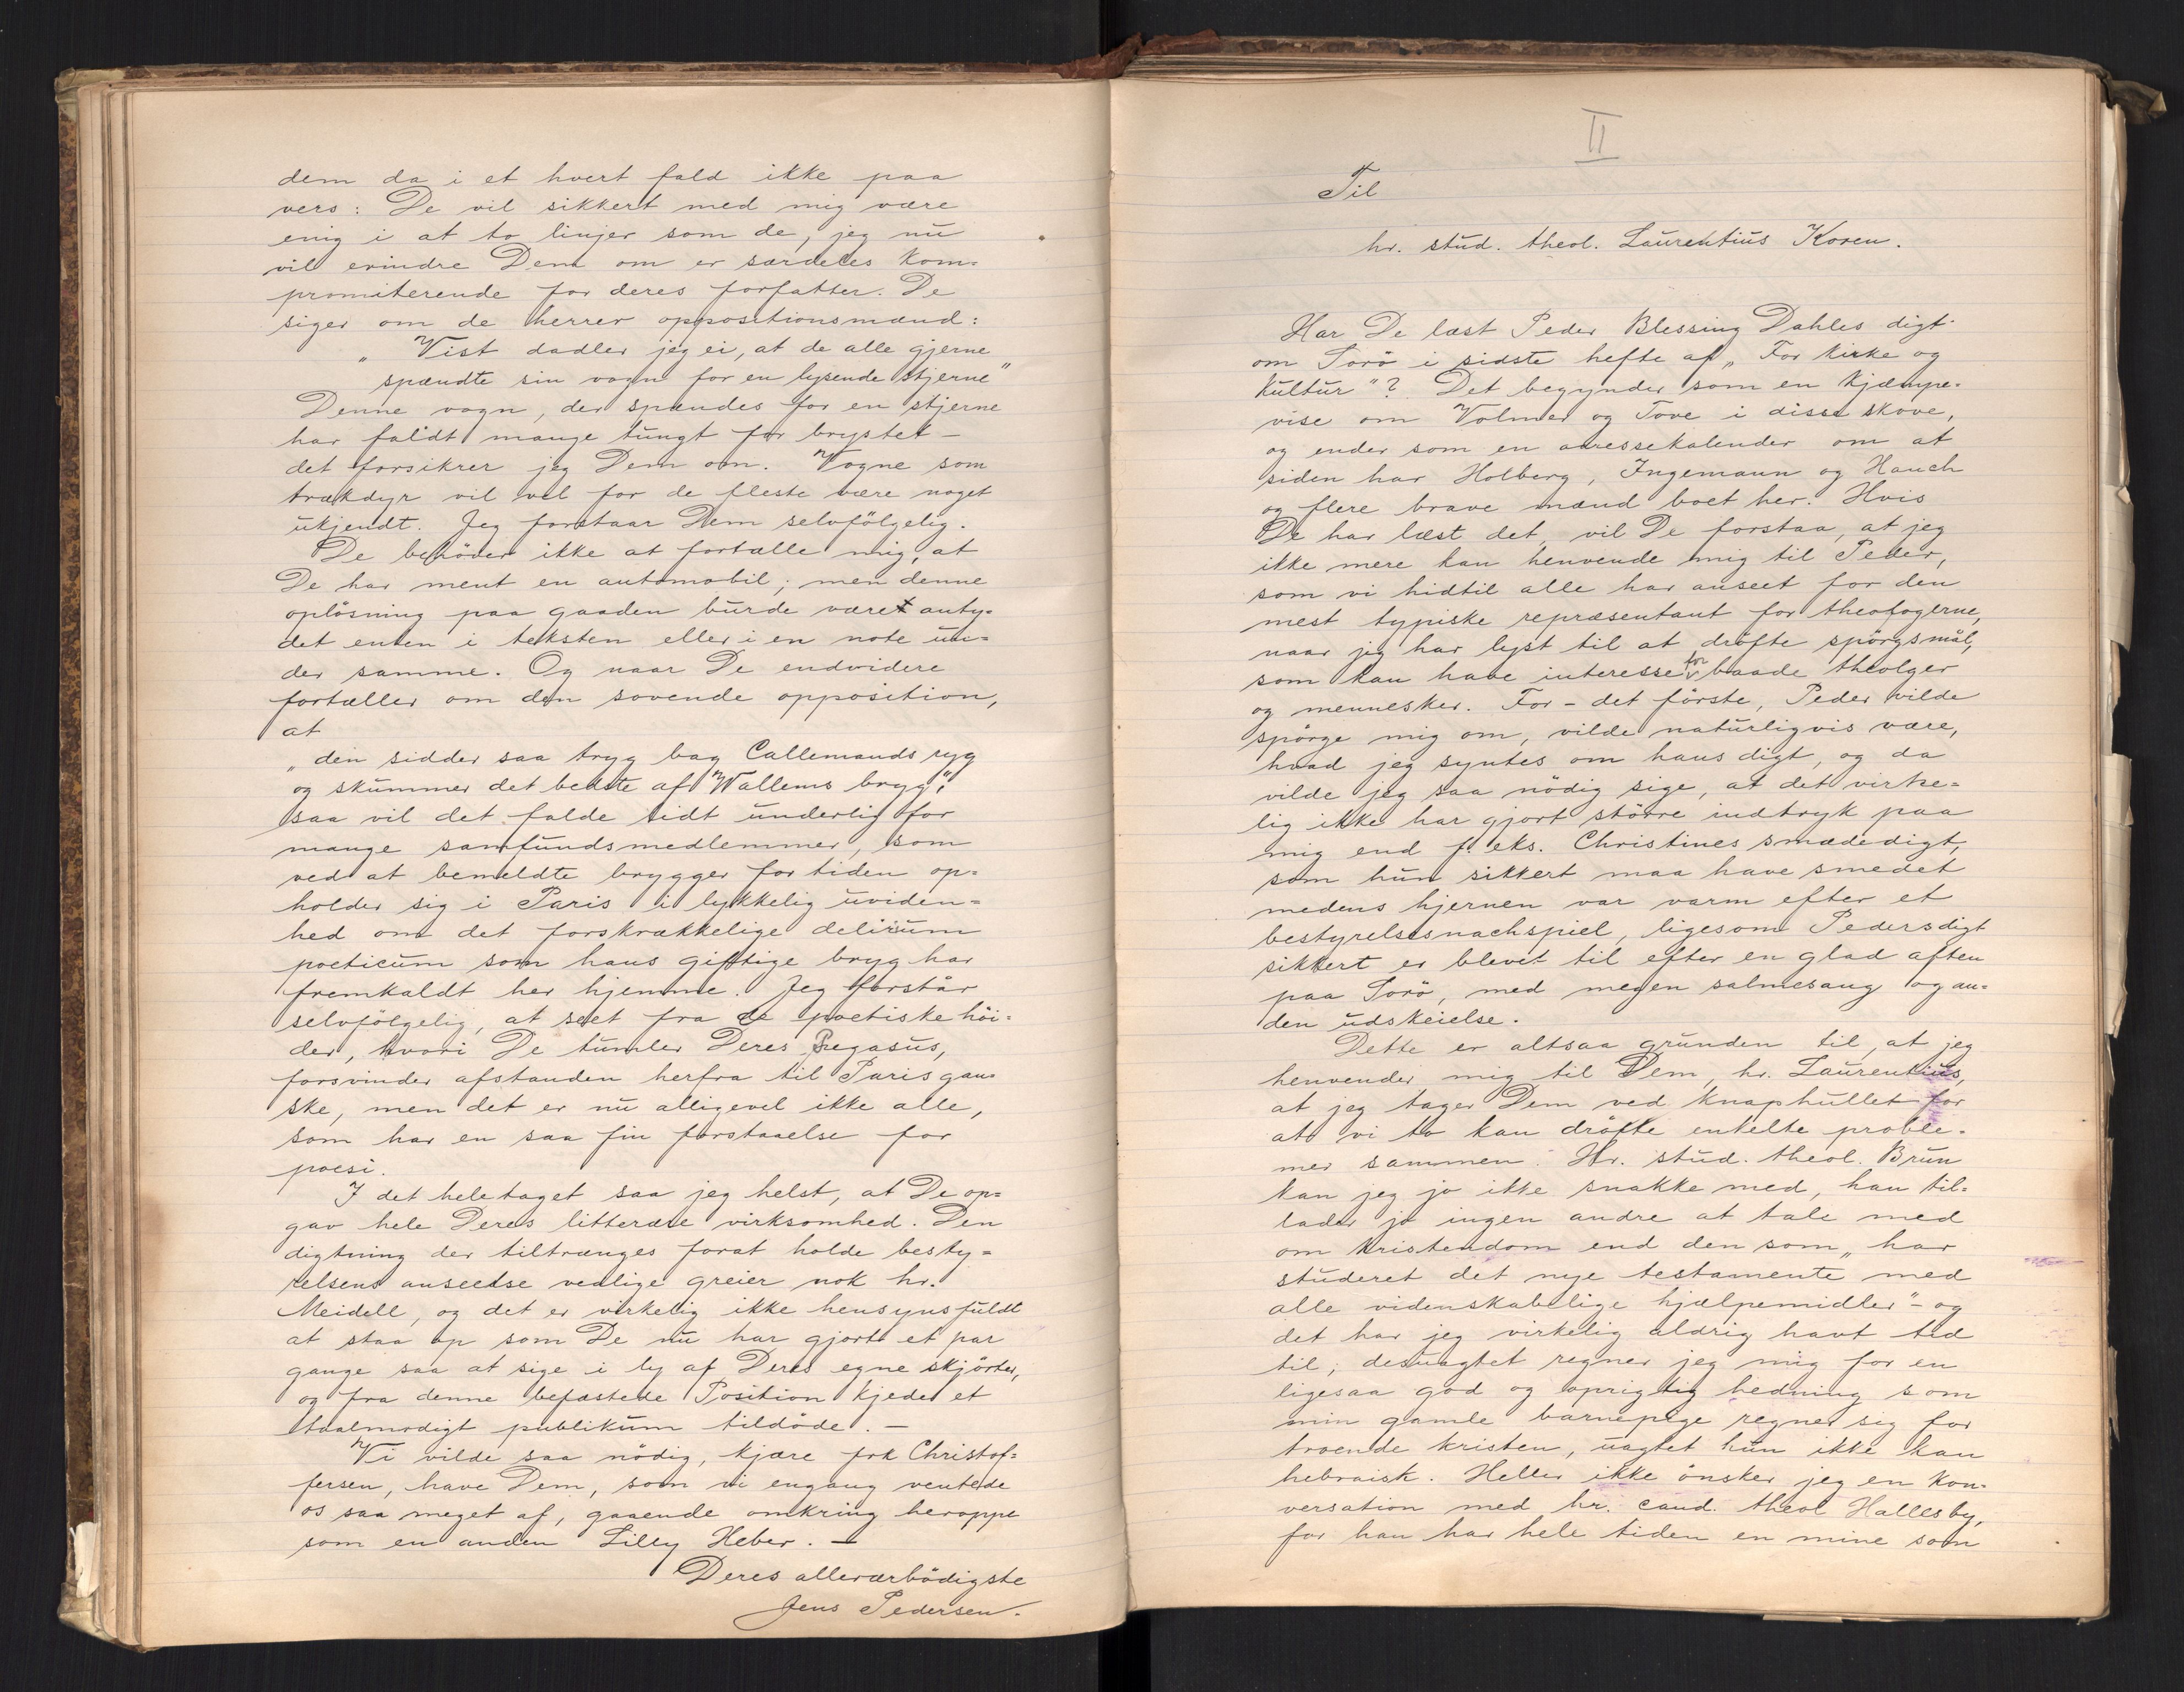 dem da i et hvert fald ikke paa
vers: De vil sikkert med mig være
enig i at to linjer som de, jeg nu
vil erindre Dem om er særdeles kom-
promiterende for deres forfatter. De
siger om de herrer oppositionsmænd:
„Vist dadler jeg ei, at de alle gjerne
spændte sin vogn for en lysende stjerne"
Denne vogn, der spændes for en stjerne
har faldt mange tungt for brystet –
det forsikrer jeg Dem om. Vogne som
trækdyr vil vel for de fleste være noget
ukjendt. Jeg forstaar Dem selvfölgelig.
De behöver ikke at fortælle mig, at
De har ment en automobil; men denne
oplösning paa gaaden burde været anty-
det enten i teksten eller i en note un-
der samme. Og naar De endvidere
fortæller om den sovende opposition,
at
„den sidder saa tryg bag Callemands ryg
og skummer det bedste af Wallems bryg",
saa vil det falde lidt underlig for
mange samfundsmedlemmer, som
ved at bemeldte brygger for tiden op-
holder sig i Paris i lykkelig uviden-
hed om det forskrækkelige delirium
poeticum som hans giftige bryg har
fremkaldt her hjemme. Jeg forstår
selvfölgelig, at seet fra de poetiske höi-
der, hvori De tumler Deres Pegasus,
forsvinder afstanden herfra til Paris gan-
ske, men det er nu alligevel ikke alle,
som har en saa fin forstaaelse for
poesi.
I det hele taget saa jeg helst, at De op-
gav hele Deres litterære virksomhed. Den
digtning der tiltrænges forat holde besty-
relsens anseelse vedlige greier nok hr.
Meidell, og det er virkelig ikke hensynsfuldt
at staa op som De nu har gjort et par
gange saa at sige i ly af Deres egne skjörter,
og fra denne befæstede Position kjeder et
taalmodigt publikum tildöde. –
Vi vilde saa nödig, kjære frk Christof-
fersen, have Dem, som vi engang ventede
os saa meget af, gaaende omkring heroppe
som en anden Lilly Heber. –
Deres allerærbödigste
Jens Pedersen.
II
Til
hr. stud. theol. Laurentius Koren.
Har De læst Peder Blessing Dahles digt
om Sorö i sidste hefte af „For kirke og
kultur"? Det begynder som en kjæmpe-
vise om Volmer og Tove i disse skove,
og ender som en adressekalender om at
siden har Holberg, Ingemann og Hauch
og flere brave mænd boet her. Hvis
De har læst det, vil De forstaa, at jeg
ikke mere kan henvende mig til Peder,
som vi hidtil alle har anseet for den
mest typiske repræsentant for theologerne,
naar jeg har lyst til at dröfte spörgsmål,
som kan have interesse for baade theolger
og mennesker. For – det förste, Peder vilde
spörge mig om, vilde naturligvis være,
hvad jeg syntes om hans digt, og da
vilde jeg saa nödig sige, at det virke-
lig ikke har gjort större indtryk paa
mig end f. eks. Christines smædedigt,
som hun sikkert maa have smedet
medens hjernen var varm efter et
bestyrelsesnachspiel, ligesom Peders digt
sikkert er blevet til efter en glad aften
paa Sorö, med megen salmesang og an-
den udskeielse.
Dette er altsaa grunden til, at jeg
henvender mig til Dem, hr. Laurentius,
at jeg tager Dem ved knaphullet for
at vi to kan dröfte enkelte proble-
mer sammen. Hr. stud. theol. Brun
kan jeg jo ikke snakke med, han til-
lader jo ingen andre at tale med
om kristendom end den som „har
studeret det nye testamente med
alle videnskabelige hjælpemidler" – og
det har jeg virkelig aldrig havt tid
til; desuagtet regner jeg mig for en
ligesaa god og oprigtig hedning som
min gamle barnepige regner sig for
troende kristen, uagtet hun ikke kan
hebraisk. Heller ikke önsker jeg en kon-
versation med hr. cand. theol Hallesby,
for han har hele tiden en mine som